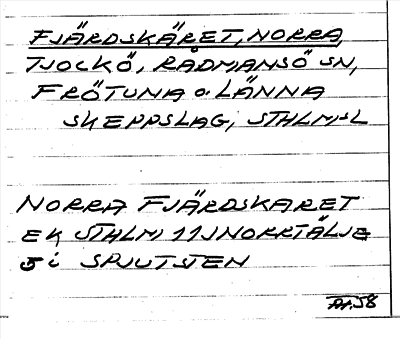 FJÄRDSKÄRET, NORRA
TJOCKÖ, RÅDMANSÖ SN,
FRÖTUNA o LÄNNA
SKEPPSLAG, STHLMS L
NORRA FJÄRDSKÄRET
EK STHLM 11J NORRTÄLJE
5 i SPJUTSTEN
58